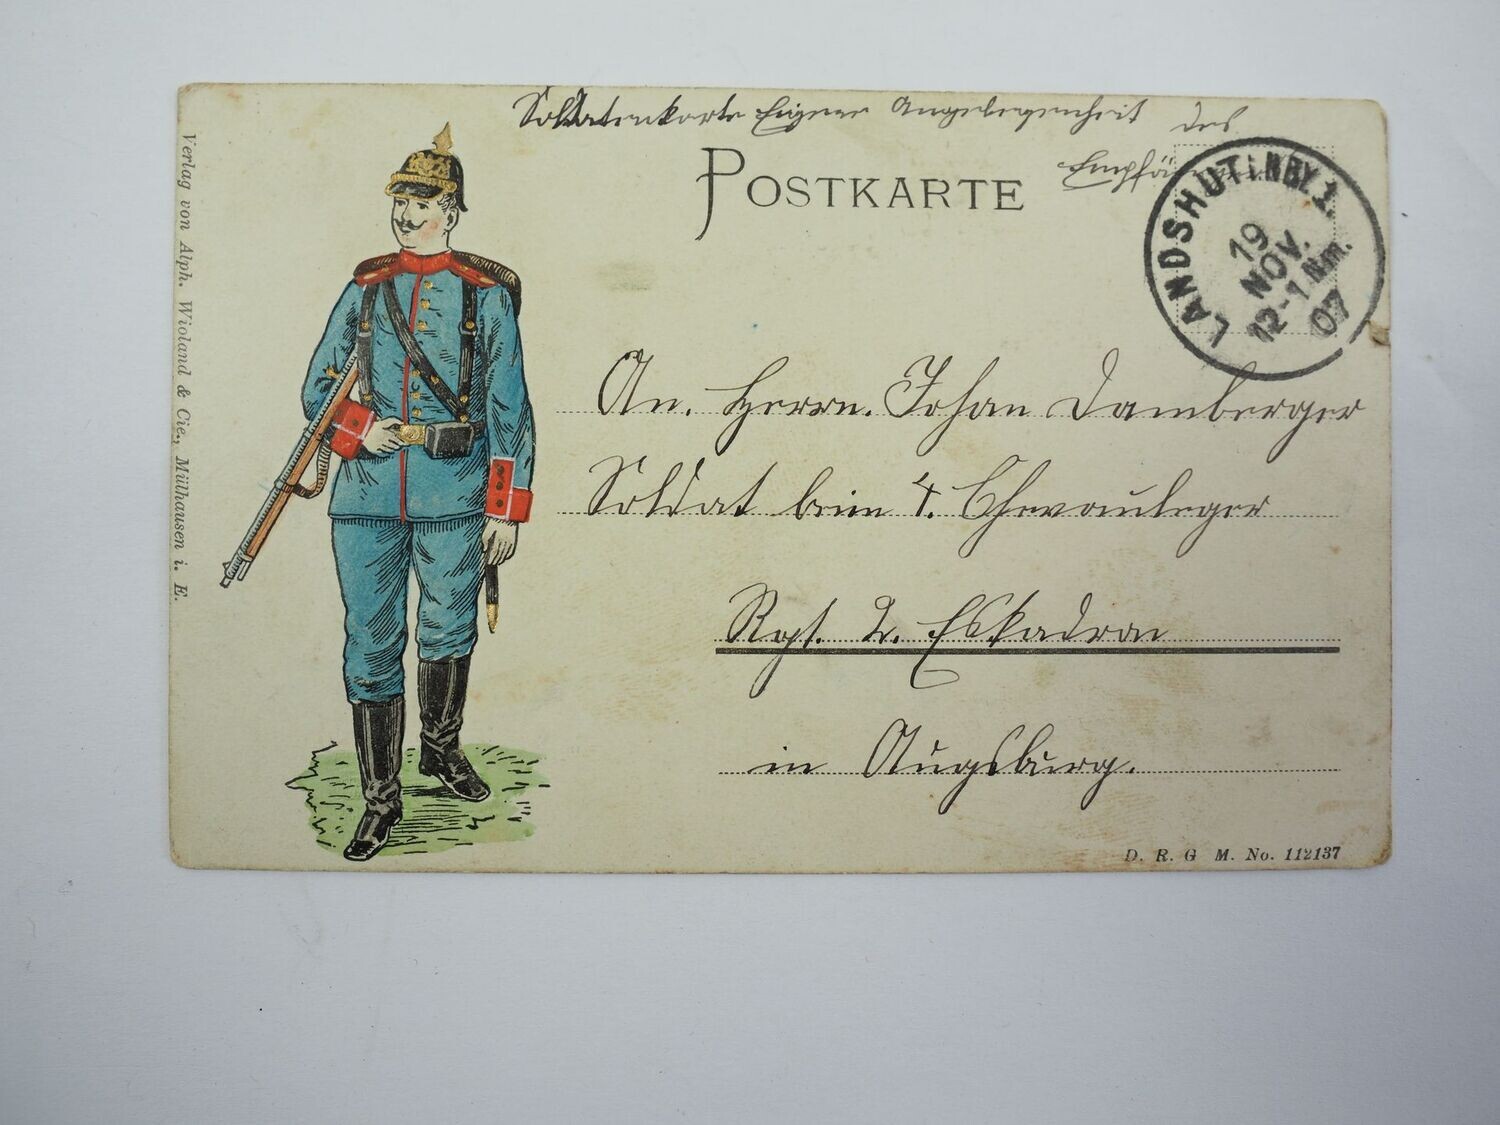 Soldatenkarte Eigene Angelegenheit des
Empfä
POSTKARTE
LANDSHUT i. NBY. 1.
19
NOV.
12-1 Nm.
07
An. Herrn. Johan Damberger
Soldat beim 4. Chevauleger
Rgt. 2. Eskadron
in Augsburg.
Verlag von Alph. Wioland & Cie., Mülhausen i. E.
D. R. G M. No. 112137